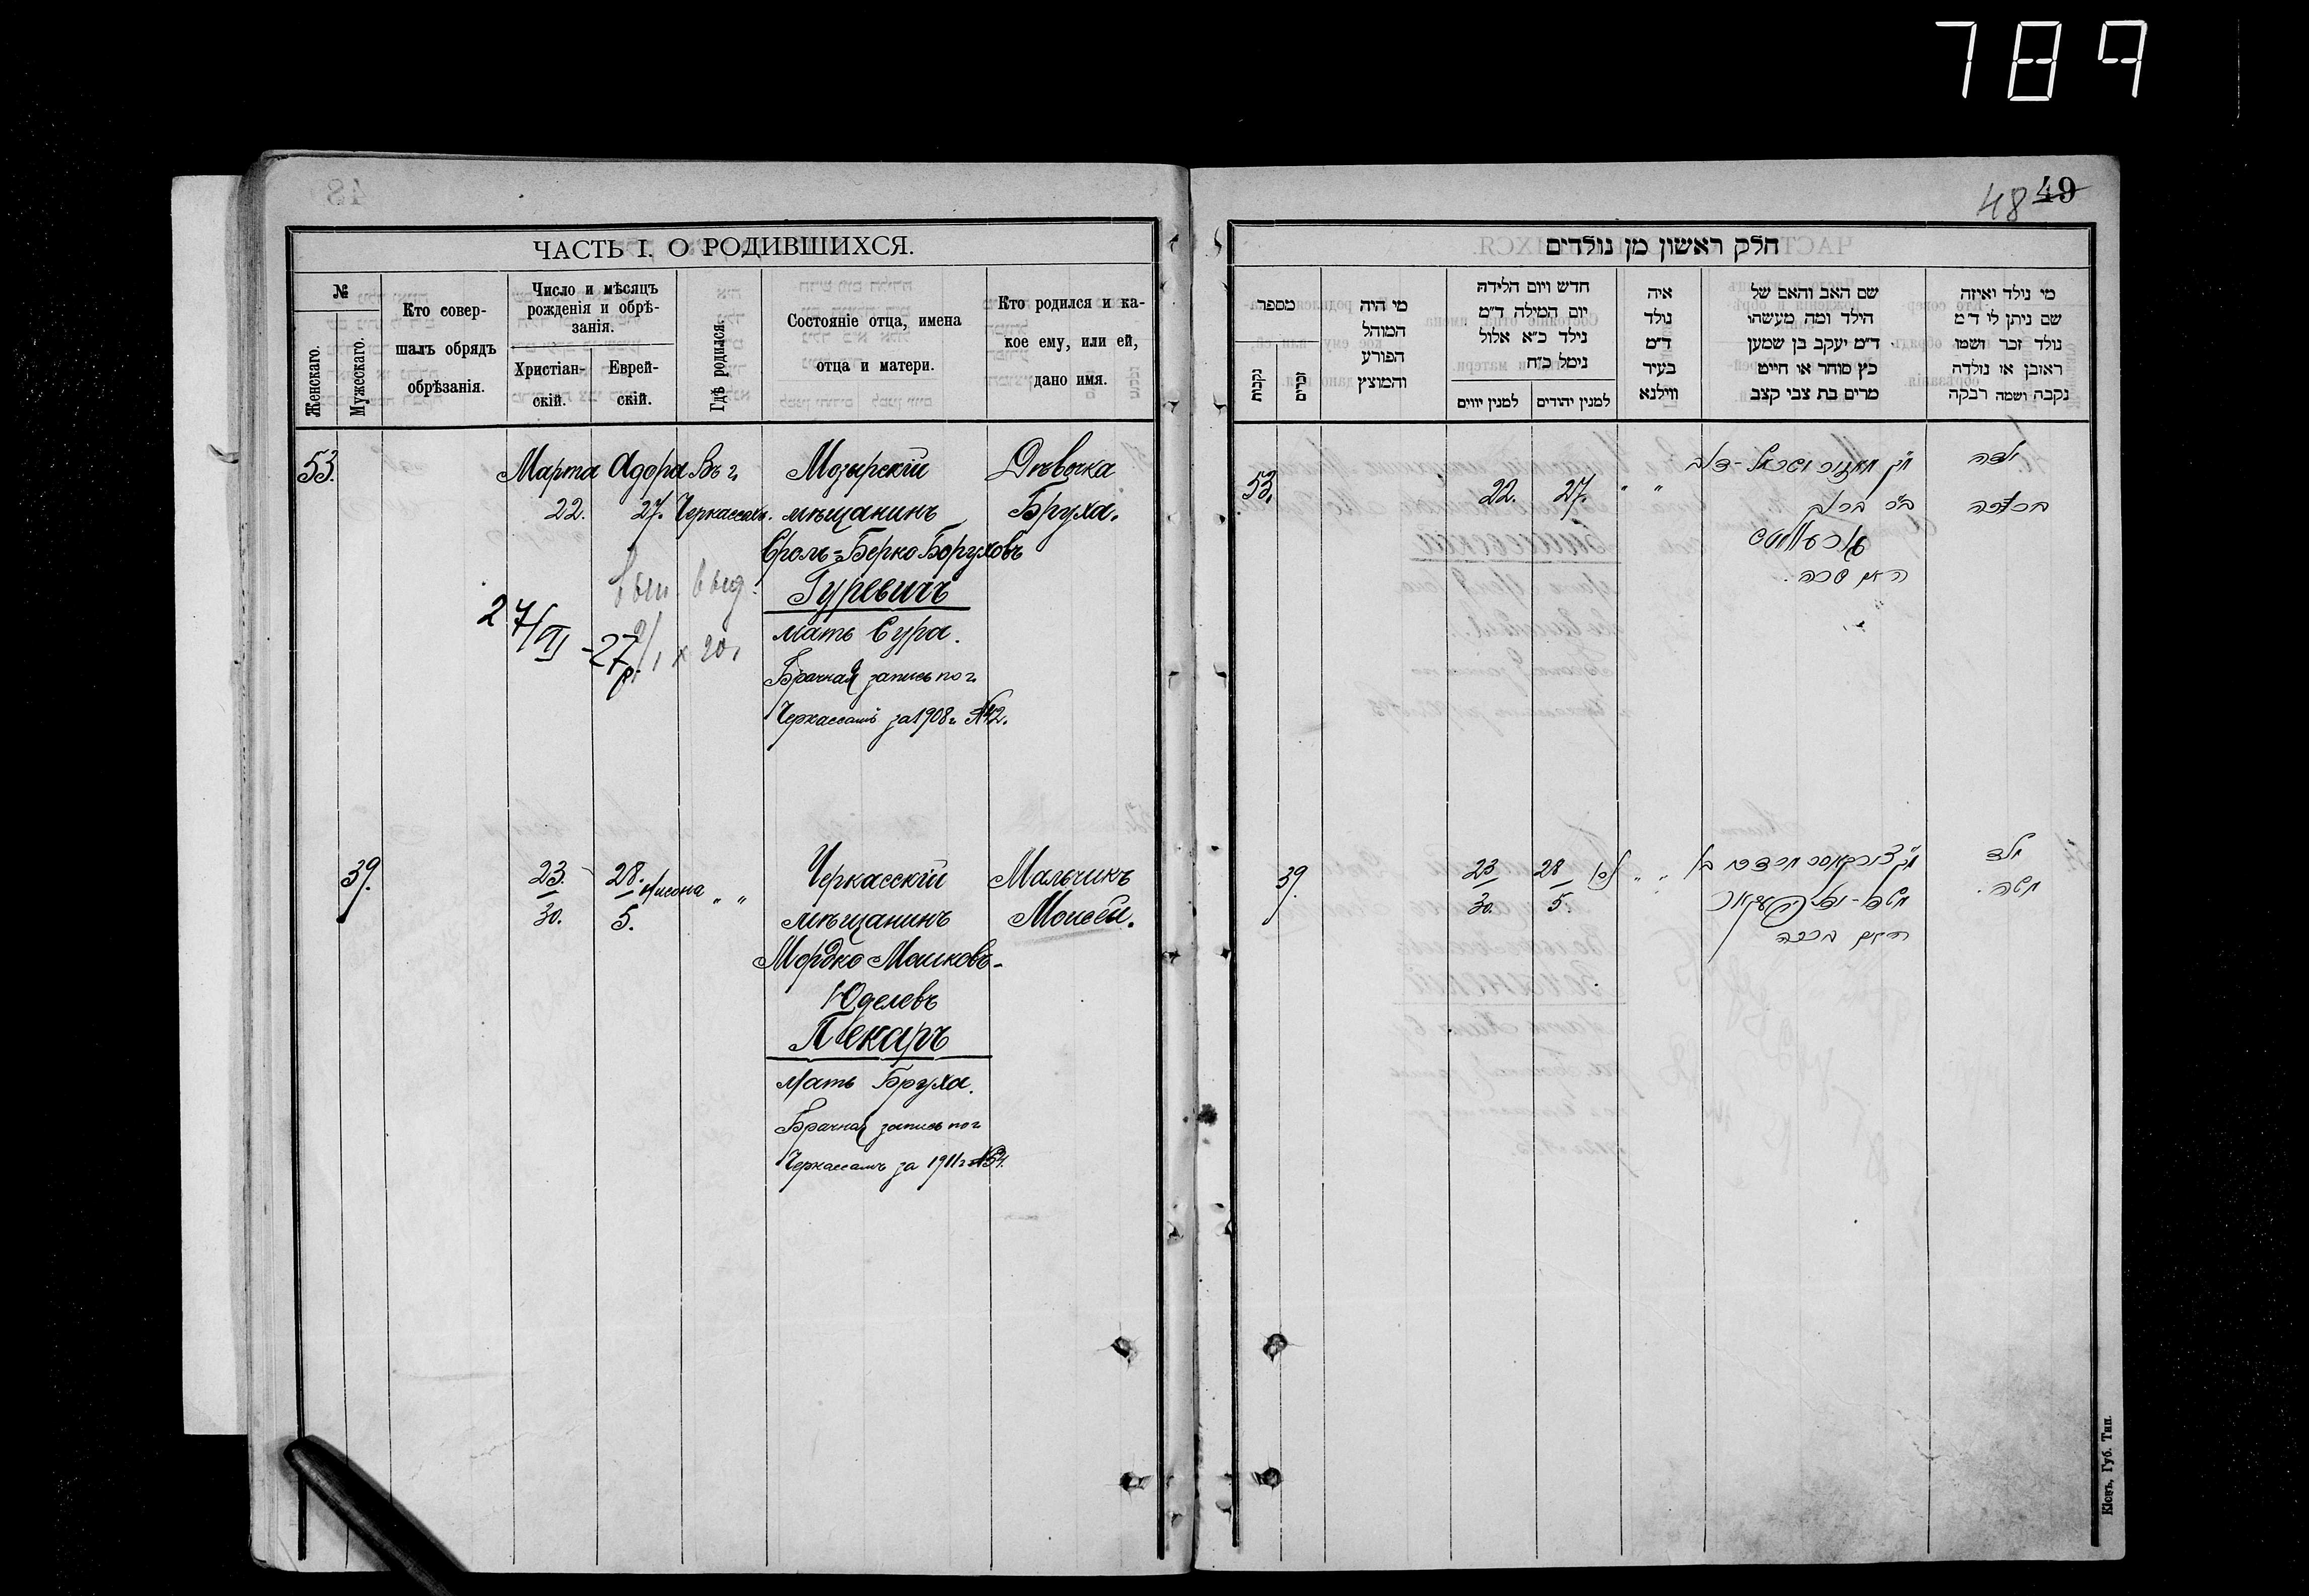 789
ЧАСТЬ I. О РОДИВШИХСЯ.
№
Женскаго.
Мужескаго.
Кто совер-
шалъ обрядъ
обрѣзанія.
Число и мѣсяцъ
рожденія и обрѣ-
занія.
Христіан-
скій.
Еврей-
скій.
Гдѣ родился.
Состояніе отца, имена
отца и матери.
Кто родился и ка-
кое ему, или ей,
дано имя.
53.
Марта
22.
Адора
27.
Въ г.
Черкассахъ.
Мозырскій
мѣщанинъ
Сроль-Берко Боруховъ
Гуревичъ
мать Сура.
Брачная запись по г.
Черкассамъ за 1908 г. №42.
Дѣвочка
Бруха.
27/VI -27
39.
23.
30.
28.
Нисона
5.
„ „
Черкасскій
мѣщанинъ
Мордко Мошковъ-
Юделевъ
Пекаръ
мать Бруха.
Брачная запись по г.
Черкассамъ за 1911 г. №54.
Мальчикъ
Моисей.
48 49
חלק ראשון מן נולדים
מספר
נקבות
זכרים
מי היה
המוהל
הפורע
והמוצץ
חדש ויום הלידה
יום המילה ד״מ
נילד כ״א אלול
נימל כ״ח
למנין יווים
למנין יהודים
איה
נולד
ד״מ
בעיר
ווילנא
שם האב והאם של
הילד ומה מעשהו
ד״מ יעקב בן שמען
כץ סוחר או חייט
מרים בת צבי קצב
מי נולד ואיזה
שם ניתן לו ד״מ
נולד זכר ושמו
ראובן או נולדה
נקבה ושמה רבקה
53.
22.
27.
„ „
האם שרה.
ילדה
ברכה
39.
23
30.
28
5.
„ „
האם ברכה
ילד
משה.
Кіевъ, Губ. Тип.